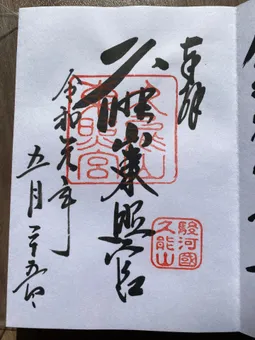 奉拝
久能山東照宮
令和元年
五月二十五日
久能山
東照宮
駿河國
久能山